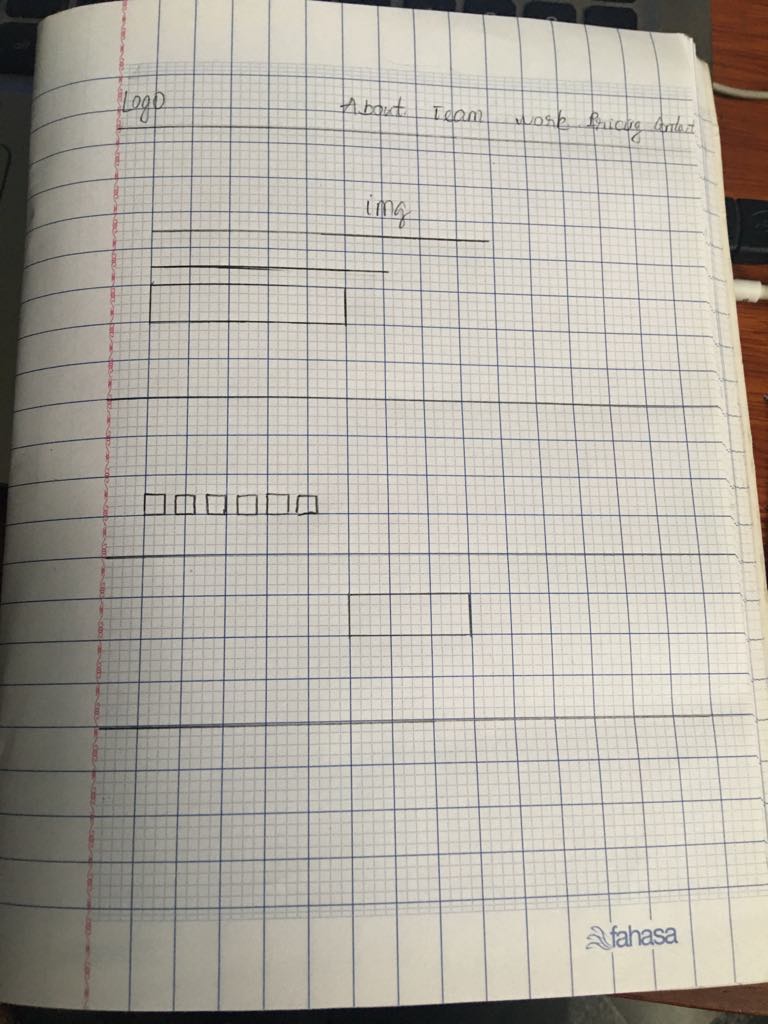 Logo About Team Work Pricing Contact
img
fahasa